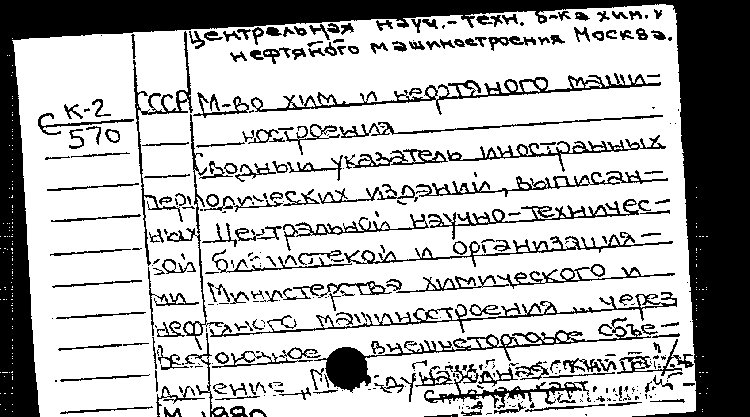 Центральная науч.-техн. б-ка хим. и
нефтяного машиностроения Москва.
СССР М-во хим. и нефтяного маши-
К-2
570
ностроения
Сводный указатель иностранных
периодических изданий, выписан-
ных Центральной научно-техничес-
кой библиотекой и организация-
ми Министерства химического и
нефтяного машиностроения ... через
Всесоюзное внешнеторговое объе-
динение „Международная книга"
М. 1980